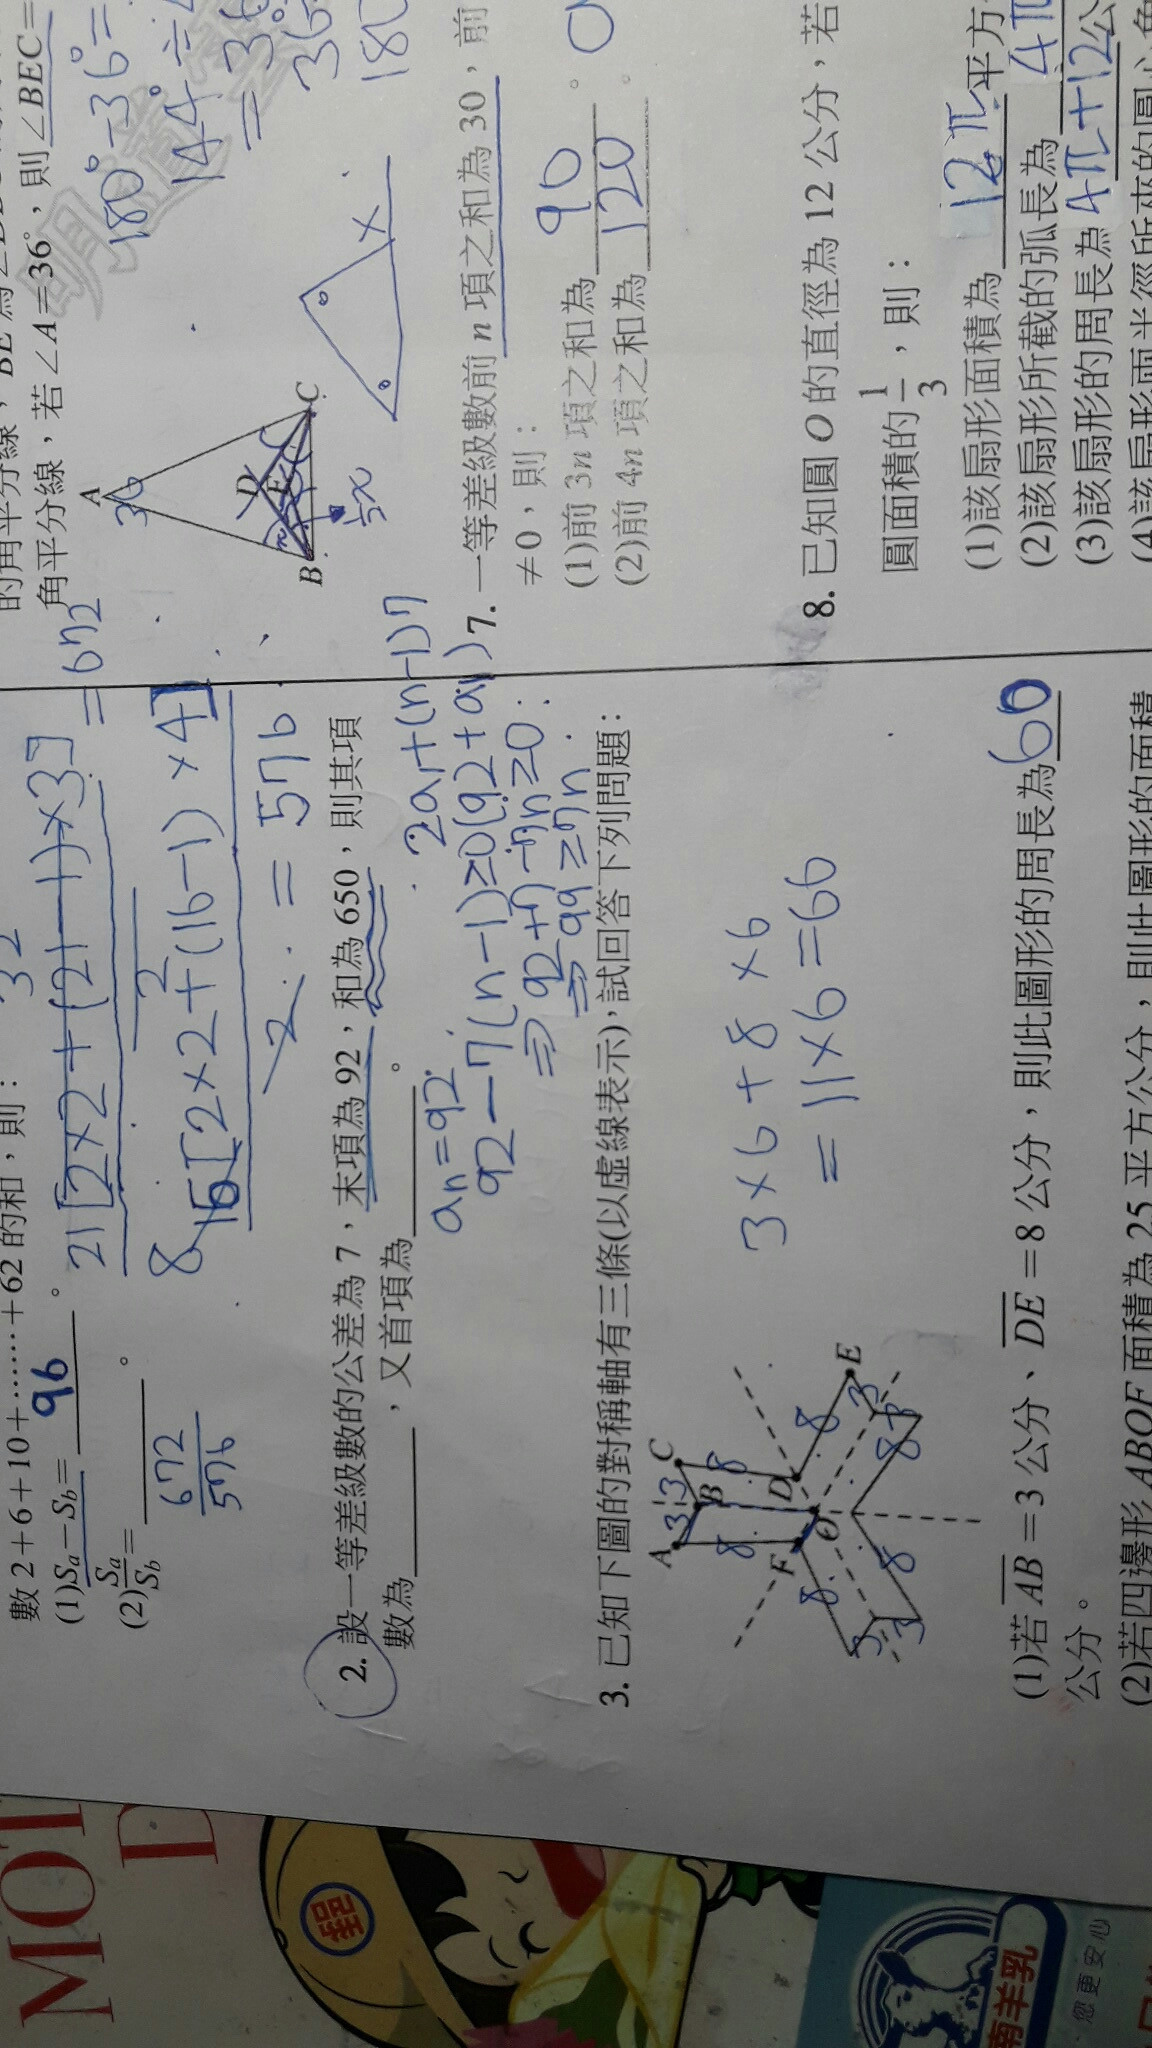 數 2+6+10+……+62 的和，則：
(1)Sa－Sb= 96 。
(2)Sa/Sb= 。
672
576
21[2×2+(21-1)×3]
2
= 672
8
16[2×2+(16-1)×4]
2
= 576
2. 設一等差級數的公差為 7，末項為 92，和為 650，則其項
數為 ，又首項為 。
an=92
92-7(n-1)≥0
⇒92+7-7n≥0
⇒99≥7n
2a1+(n-1)7
3. 已知下圖的對稱軸有三條(以虛線表示)，試回答下列問題：
A
B
C
D
E
F
O
3
3
8
8
8
8
3
3
8
8
3
3
3×6+8×6
=11×6=66
(1)若 AB=3 公分、DE=8 公分，則此圖形的周長為 66
公分。
(2)若四邊形 ABOF 面積為 25 平方公分，則此圖形的面積
角平分線，若∠A=36°，則∠BEC=
A
36
D
E
B
C
x
180°-36°=
7. 一等差級數前 n 項之和為 30，前
≠0，則：
(1)前 3n 項之和為 90 。
(2)前 4n 項之和為 120 。
8. 已知圓 O 的直徑為 12 公分，若
圓面積的 1/3，則：
(1)該扇形面積為 12π 平方
(2)該扇形所截的弧長為 4π
(3)該扇形的周長為 4π+12 公
(4)該扇形兩半徑所夾的圓心角
MOT
D
南羊乳
您更安心